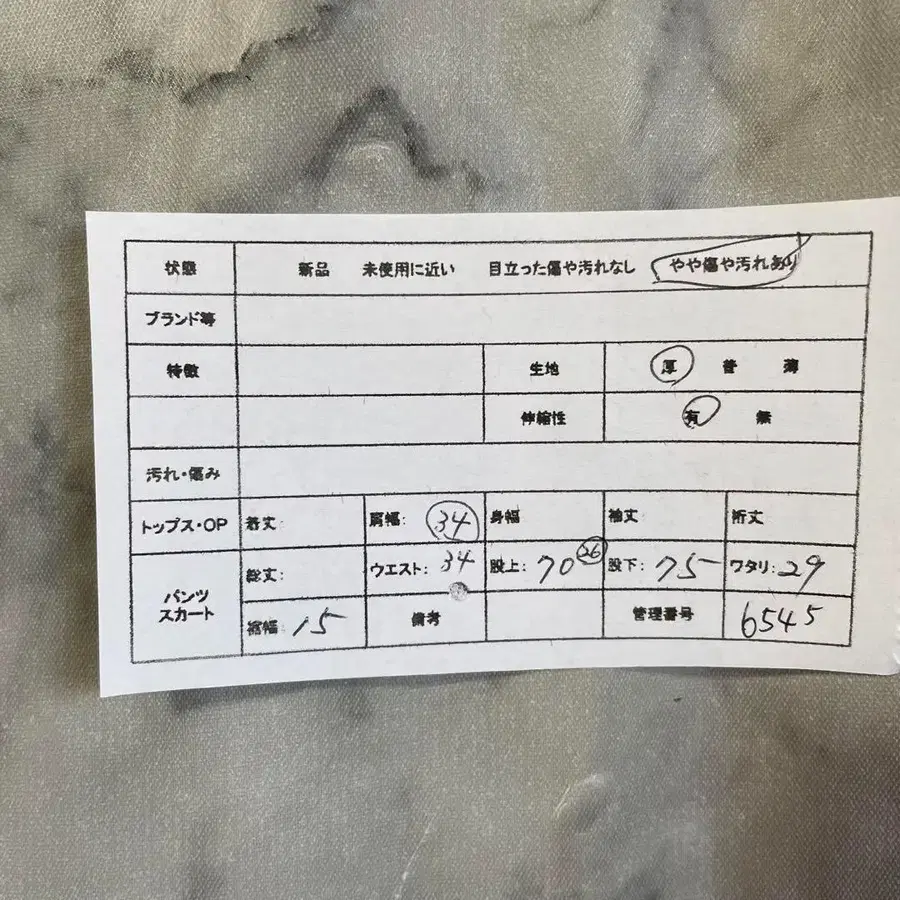 状態 新品 未使用に近い 目立った傷や汚れなし やや傷や汚れあり
ブランド等
特徴 生地 厚 普 薄
伸縮性 有 無
汚れ・傷み
トップス・OP 着丈: 肩幅: 34 身幅 袖丈 裄丈
パンツ スカート
総丈: ウエスト: 34 股上: 70 26 股下: 75 ワタリ: 29
裾幅: 15 備考 管理番号 6545